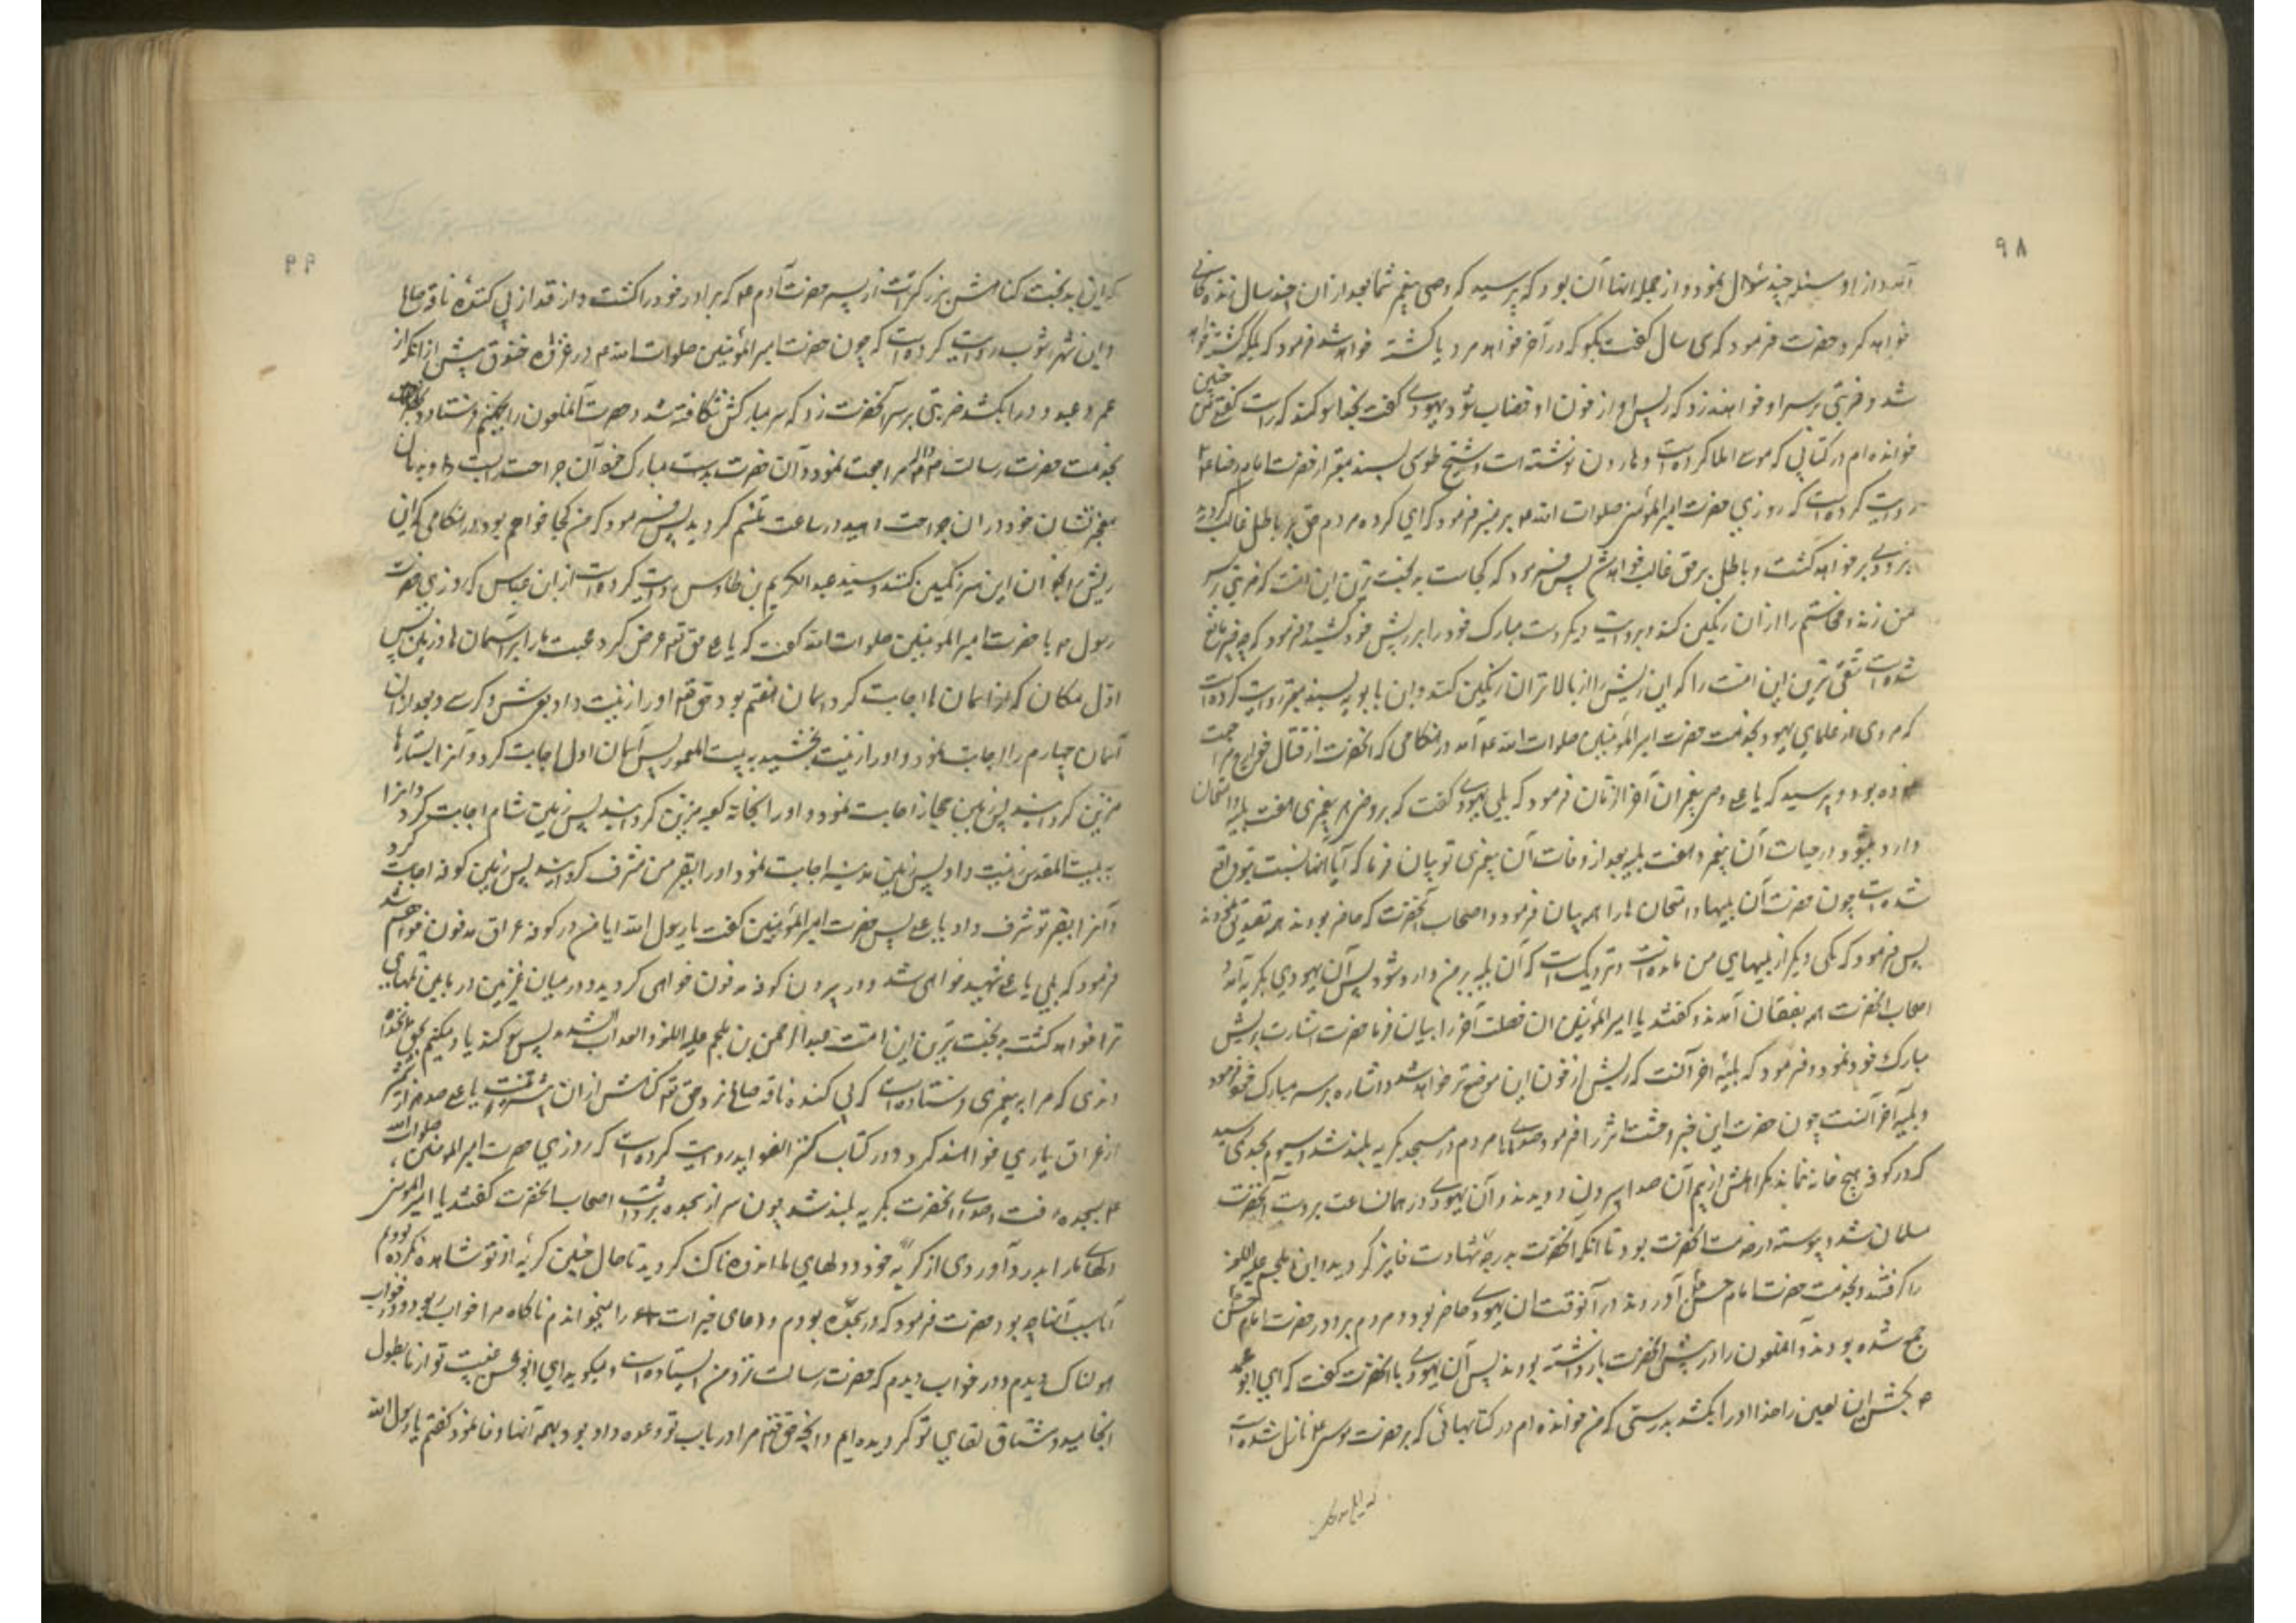 ۹۸
آمد و از او مسئله چند سؤال نمود و از جمله آنها آن بود که پرسید که وصی پیغمبر شما بعد از آن چند سال زندگانی
خواهد کرد حضرت فرمود که سی سال گفت بگو که در آخر خواهد مرد یا کشته خواهد شد فرمود که بلکه کشته خواهد
شد و ضربتی بر سر او خواهند زد که ریش او از خون او خضاب شود یهودی گفت بخدا سوگند که راست گفتی من چنین
خوانده ام در کتابی که موسی املا کرده است و هارون نوشته است و شیخ طوسی بسند معتبر از حضرت امام رضا ع
روایت کرده است که روزی حضرت امیر المؤمنین صلوات الله ع بر منبر فرمود که ای گروه مردم حق بر باطل غالب گردید
بزودی بر خواهد گشت و باطل بر حق غالب خواهد شد پس فرمود که کجاست بدبخت ترین این امت که ضربتی بر سر
من زند و محاسنم را از آن رنگین کند و بروایت دیگر دست مبارک خود را بر ریش خود کشید و فرمود که چه چیز مانع
شده است شقی ترین این امت را که این ریش را از بالاتر آن رنگین کند و ابن بابویه بسند معتبر روایت کرده است
که مردی از علمای یهود بخدمت حضرت امیر المؤمنین صلوات الله ع آمد در هنگامی که آنحضرت از قتال خوارج مراجعت
نموده بود و پرسید که یا علی وصی پیغمبران آخر الزمان فرمود که بلی یهودی گفت که بر وصی هر پیغمبری هفت بلیه و امتحان
وارد میشود در حیات آن پیغمبر و هفت بلیه بعد از وفات آن پیغمبری تو بیان فرما که آیا آنها نسبت بتو واقع
شده است چون حضرت آن بلیها و امتحان ها را همه بیان فرمود و اصحاب آنحضرت که حاضر بودند همه تصدیق نمودند
پس فرمود که یکی دیگر از بلیهای من مانده است و نزدیک است که آن بلیه بر من وارد شود پس آن یهودی بگریه آمد و
اصحاب آنحضرت همه بفغان آمدند و گفتند یا امیر المؤمنین آن خصلت آخر را بیان فرما حضرت اشارت بریش
مبارک خود نمود و فرمود که بلیه آخر آنست که ریش از خون این موضع تر خواهد شد و اشاره بر سر مبارک خود نمود
و بلیه آخر آنست چون حضرت این خبر وحشت اثر را فرمود صدای مردم در مسجد بگریه بلند شد بحدی رسید
که در کوفه هیچ خانه نماند مگر اهلش از بیم آن صدا بیرون دویدند و آن یهودی در همان ساعت بر دست آنحضرت
مسلمان شد و پیوسته در خدمت آنحضرت بود تا آنکه آنحضرت بدرجه شهادت فایز گردید و ابن ملجم علیه اللعنه
را گرفتند و بخدمت حضرت امام حسن ع آوردند در آنوقت آن یهودی حاضر بود و مردم بر دور حضرت امام حسن
جمع شده بودند و آن ملعون را در پیش آنحضرت بازداشته بودند پس آن یهودی با آنحضرت گفت که ای ابو محمد
بکش این لعین را خدا او را بکشد بدرستی که من خوانده ام در کتابهائی که بر حضرت موسی ع نازل شده است
۹۹
که این بدبخت گناهش بزرگتر است از پسر حضرت آدم ع که برادر خود را کشت و از قدار پی کننده ناقه صالح
و ابن شهر آشوب روایت کرده است که چون حضرت امیر المؤمنین صلوات الله ع در غزاء خندق پیش از آنکه از
عمرو عبدود را بکشد ضربتی بر سر آنحضرت زد که سر مبارکش شکافته شد و حضرت آن ملعون را بجهنم فرستاد و
بخدمت حضرت رسالت مراجعت نمود و آن حضرت بدست مبارک خود آن جراحت را بست و به زبان
معجز نشان خود در آن جراحت دمید و در ساعت ملتئم گردید پس فرمود که من کجا خواهم بود در هنگامی که این
ریش را بخون این سر رنگین کنند و سید عبد الکریم بن طاوس روایت کرده است از ابن عباس که روزی حضرت
رسول ص با حضرت امیر المؤمنین صلوات الله گفت که یا علی حق تعالی عرض کرد محبت ما را بر آسمان ها و زمین پس
اول مکان که از آسمان ها اجابت کرد آسمان هفتم بود حق تعالی او را زینت داد بعرش و کرسی و بعد از آن
آسمان چهارم را اجابت نمود و او را زینت بخشید به بیت المعمور پس آسمان اول اجابت کرد و آنرا بستارها
مزین گردانید پس زمین حجاز اجابت نمود و او را بخانه کعبه مزین گردانید پس زمین شام اجابت کرد و آنرا
به بیت المقدس زینت داد پس زمین مدینه اجابت نمود و او را بقبر من مشرف گردانید پس زمین کوفه اجابت کرد
و آنرا بقبر تو شرف داد یا علی پس حضرت امیر المؤمنین گفت یا رسول الله آیا من در کوفه عراق مدفون خواهم شد
فرمود که بلی یا علی شهید خواهی شد و در بیرون کوفه مدفون خواهی گردید و در میان غریین در مابین تلهای
ترا خواهد کشت بدبخت ترین این امت عبد الرحمن بن ملجم علیه اللعنه و العذاب الشدید پس سوگند یاد میکنم بحق
خداوندی که مرا به پیغمبری فرستاده است که پی کننده ناقه صالح نزد حق تعالی گناهش از آن بیشتر نیست یا علی صد هزار
از عراق یاری خواهند کرد و در کتاب کنز الفواید روایت کرده است که روزی حضرت امیر المومنین صلوات الله
ع بسجده رفت و صدای آنحضرت بگریه بلند شد چون سر از سجده برداشت اصحاب آنحضرت گفتند یا امیر المومنین
دلهای ما را بدرد آوردی از گریه خود و دلهای ما اندوهناک گردید تا حال چنین گریه از تو مشاهده نکرده بودیم
آیا سبب آنها چه بود حضرت فرمود که در سجده بودم و دعای خیرات را میخواندم ناگاه مرا خواب ربود و در خواب
هولناک دیدم و در خواب دیدم که حضرت رسالت نزد من ایستاده است و میگوید ای ابو الحسن غیبت تو از ما بطول
انجامید و مشتاق لقای تو گردیده ایم و آنچه حق تعالی مرا در باب تو وعده داده بود بهمه آنها وفا نمود گفتم یا رسول الله